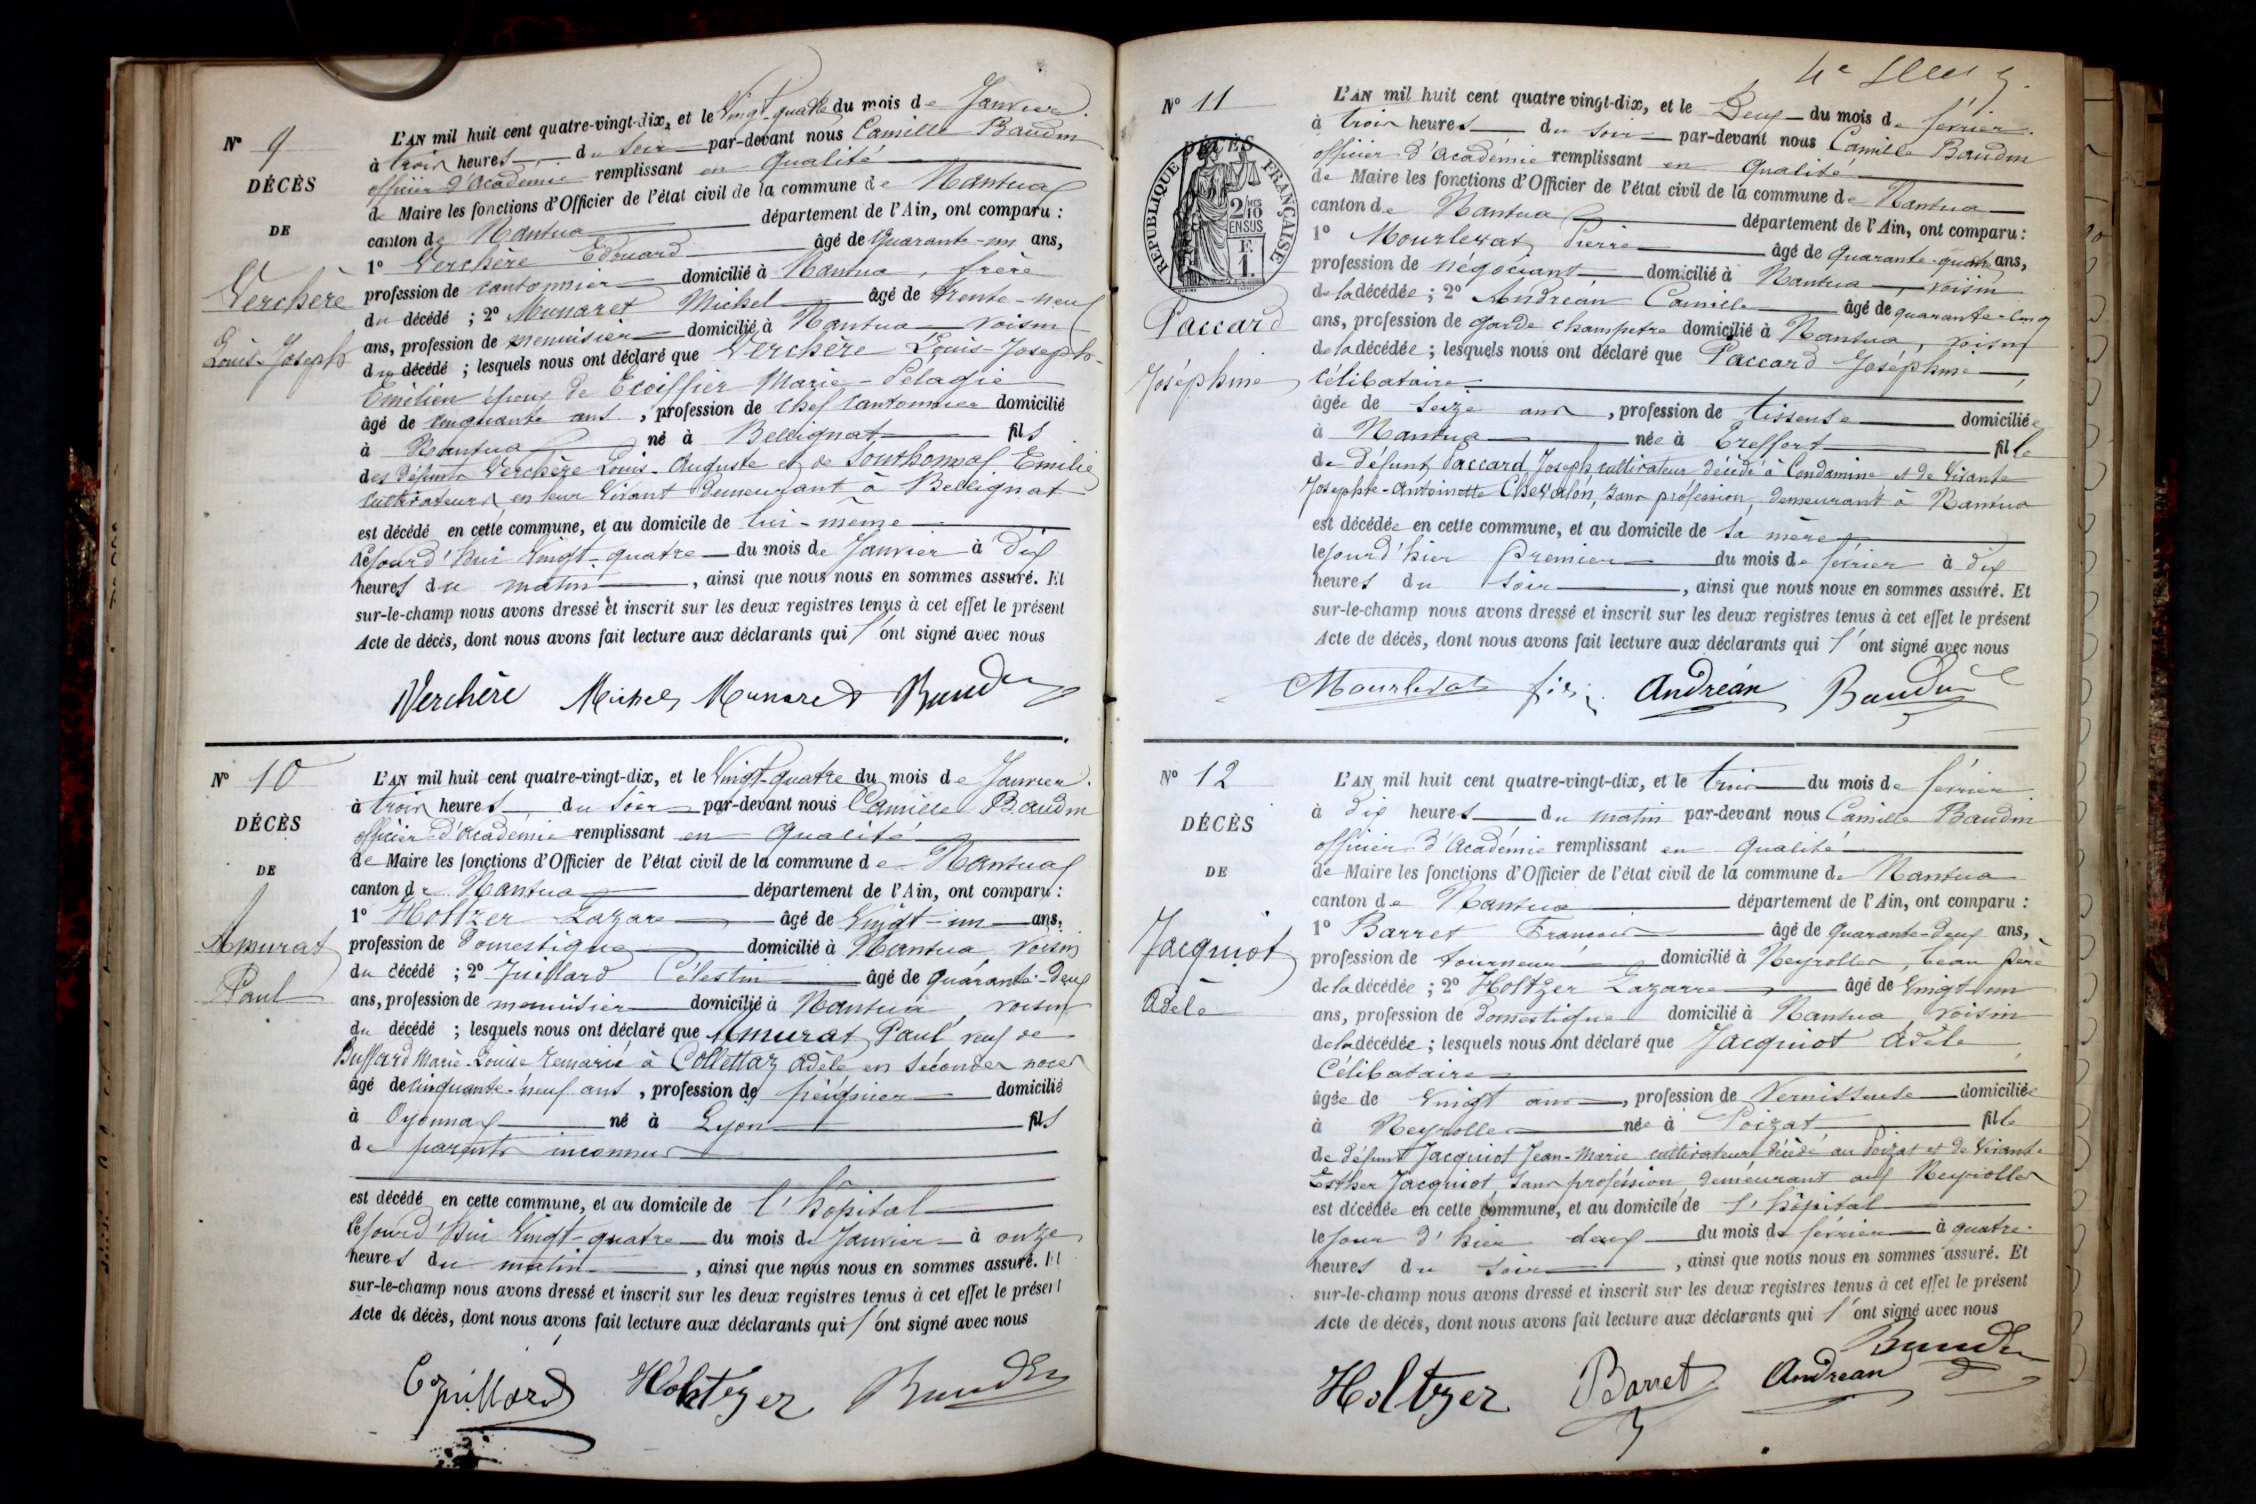 N° 9
DÉCÈS
DE
Verchère
Louis-Joseph
L'AN mil huit cent quatre-vingt-dix, et le Vingt-quatre du mois de Janvier
à trois heures du soir par-devant nous Camille Baudin
officier d'Académie remplissant en qualité
de Maire les fonctions d'Officier de l'état civil de la commune de Nantua
canton de Nantua département de l'Ain, ont comparu :
1° Verchère Edouard âgé de quarante-un ans,
profession de cantonnier domicilié à Nantua, frère
du décédé ; 2° Munaret Michel âgé de trente-neuf
ans, profession de menuisier domicilié à Nantua voisin
du décédé ; lesquels nous ont déclaré que Verchère Louis-Joseph-
Emilien époux de Ecoiffier Marie-Pelagie
âgé de cinquante ans, profession de chef cantonnier domicilié
à Nantua né à Bellignat fils
des défunts Verchère Louis-Auguste et de Southonnax Emilie
cultivateurs en leur vivant demeurant à Bellignat
est décédé en cette commune, et au domicile de lui-même
cejourd'hui vingt-quatre du mois de Janvier à dix
heures du matin, ainsi que nous nous en sommes assuré. Et
sur-le-champ nous avons dressé et inscrit sur les deux registres tenus à cet effet le présent
Acte de décès, dont nous avons fait lecture aux déclarants qui l'ont signé avec nous
Verchère Michel Munaret Baudin
N° 10
DÉCÈS
DE
Amurat
Paul
L'AN mil huit cent quatre-vingt-dix, et le Vingt-quatre du mois de Janvier.
à trois heures du soir par-devant nous Camille Baudin
officier d'Académie remplissant en qualité
de Maire les fonctions d'Officier de l'état civil de la commune de Nantua
canton de Nantua département de l'Ain, ont comparu :
1° Holtzer Lazare âgé de vingt-un ans,
profession de domestique domicilié à Nantua voisin
du décédé ; 2° Juillard Célestin âgé de quarante-deux
ans, profession de menuisier domicilié à Nantua, voisin
du décédé ; lesquels nous ont déclaré que Amurat Paul veuf de
Buffard Marie-Louise remarié à Collettaz Adèle en secondes noces
âgé de cinquante-neuf ans, profession de peignier domicilié
à Oyonnax né à Lyon fils
de parents inconnus
est décédé en cette commune, et au domicile de l'hôpital
cejourd'hui vingt-quatre du mois de Janvier à onze
heures du matin, ainsi que nous nous en sommes assuré. Et
sur-le-champ nous avons dressé et inscrit sur les deux registres tenus à cet effet le présent
Acte de décès, dont nous avons fait lecture aux déclarants qui l'ont signé avec nous
Juillard Holtzer Baudin
N° 11
DÉCÈS
RÉPUBLIQUE FRANÇAISE
2/10 EN SUS
F 1.
Paccard
Joséphine
L'AN mil huit cent quatre vingt-dix, et le Deux du mois de février.
à trois heures du soir par-devant nous Camille Baudin
officier d'Académie remplissant en qualité
de Maire les fonctions d'Officier de l'état civil de la commune de Nantua
canton de Nantua département de l'Ain, ont comparu :
1° Mourlevat Pierre âgé de quarante-quatre ans,
profession de négociant domicilié à Nantua, voisin
de la décédée ; 2° Andréan Camille âgé de quarante-cinq
ans, profession de garde champetre domicilié à Nantua, voisin
de la décédée ; lesquels nous ont déclaré que Paccard Joséphine
célibataire
âgée de seize ans, profession de tisseuse domiciliée
à Nantua née à Treffort fille
de défunt Paccard Joseph cultivateur décédé à Condamine et de vivante
Josephte-Antoinette Chevalon, sans profession, demeurant à Nantua
est décédée en cette commune, et au domicile de sa mère
lejourd'hier premier du mois de février à dix
heures du soir, ainsi que nous nous en sommes assuré. Et
sur-le-champ nous avons dressé et inscrit sur les deux registres tenus à cet effet le présent
Acte de décès, dont nous avons fait lecture aux déclarants qui l'ont signé avec nous
Mourlevat Andréan Baudin
N° 12
DÉCÈS
DE
Jacquiot
Adèle
L'AN mil huit cent quatre-vingt-dix, et le trois du mois de février
à dix heures du matin par-devant nous Camille Baudin
officier d'Académie remplissant en qualité
de Maire les fonctions d'Officier de l'état civil de la commune de Nantua
canton de Nantua département de l'Ain, ont comparu :
1° Barret François âgé de quarante-deux ans,
profession de tourneur domicilié à Neyrolles, beau père
de la décédée ; 2° Holtzer Lazarre âgé de vingt-un
ans, profession de domestique domicilié à Nantua, voisin
de la décédée ; lesquels nous ont déclaré que Jacquiot Adèle
Célibataire
âgée de vingt ans, profession de Vernisseuse domiciliée
à Neyrolles née à Poizat fille
de défunt Jacquiot Jean-Marie cultivateur décédé au Poizat et de vivante
Esther Jacquiot sans profession demeurant aux Neyrolles
est décédée en cette commune, et au domicile de l'hôpital
lejour d'hier deux du mois de février à quatre
heures du soir, ainsi que nous nous en sommes assuré. Et
sur-le-champ nous avons dressé et inscrit sur les deux registres tenus à cet effet le présent
Acte de décès, dont nous avons fait lecture aux déclarants qui l'ont signé avec nous
Baudin
Holtzer Barret Andréan